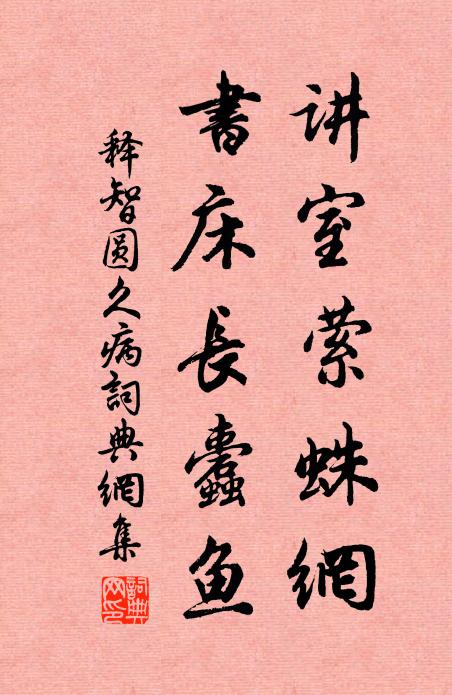 讲室萦蛛網
書床長蠹鱼
释智圆久病詞典網集
詞典网印